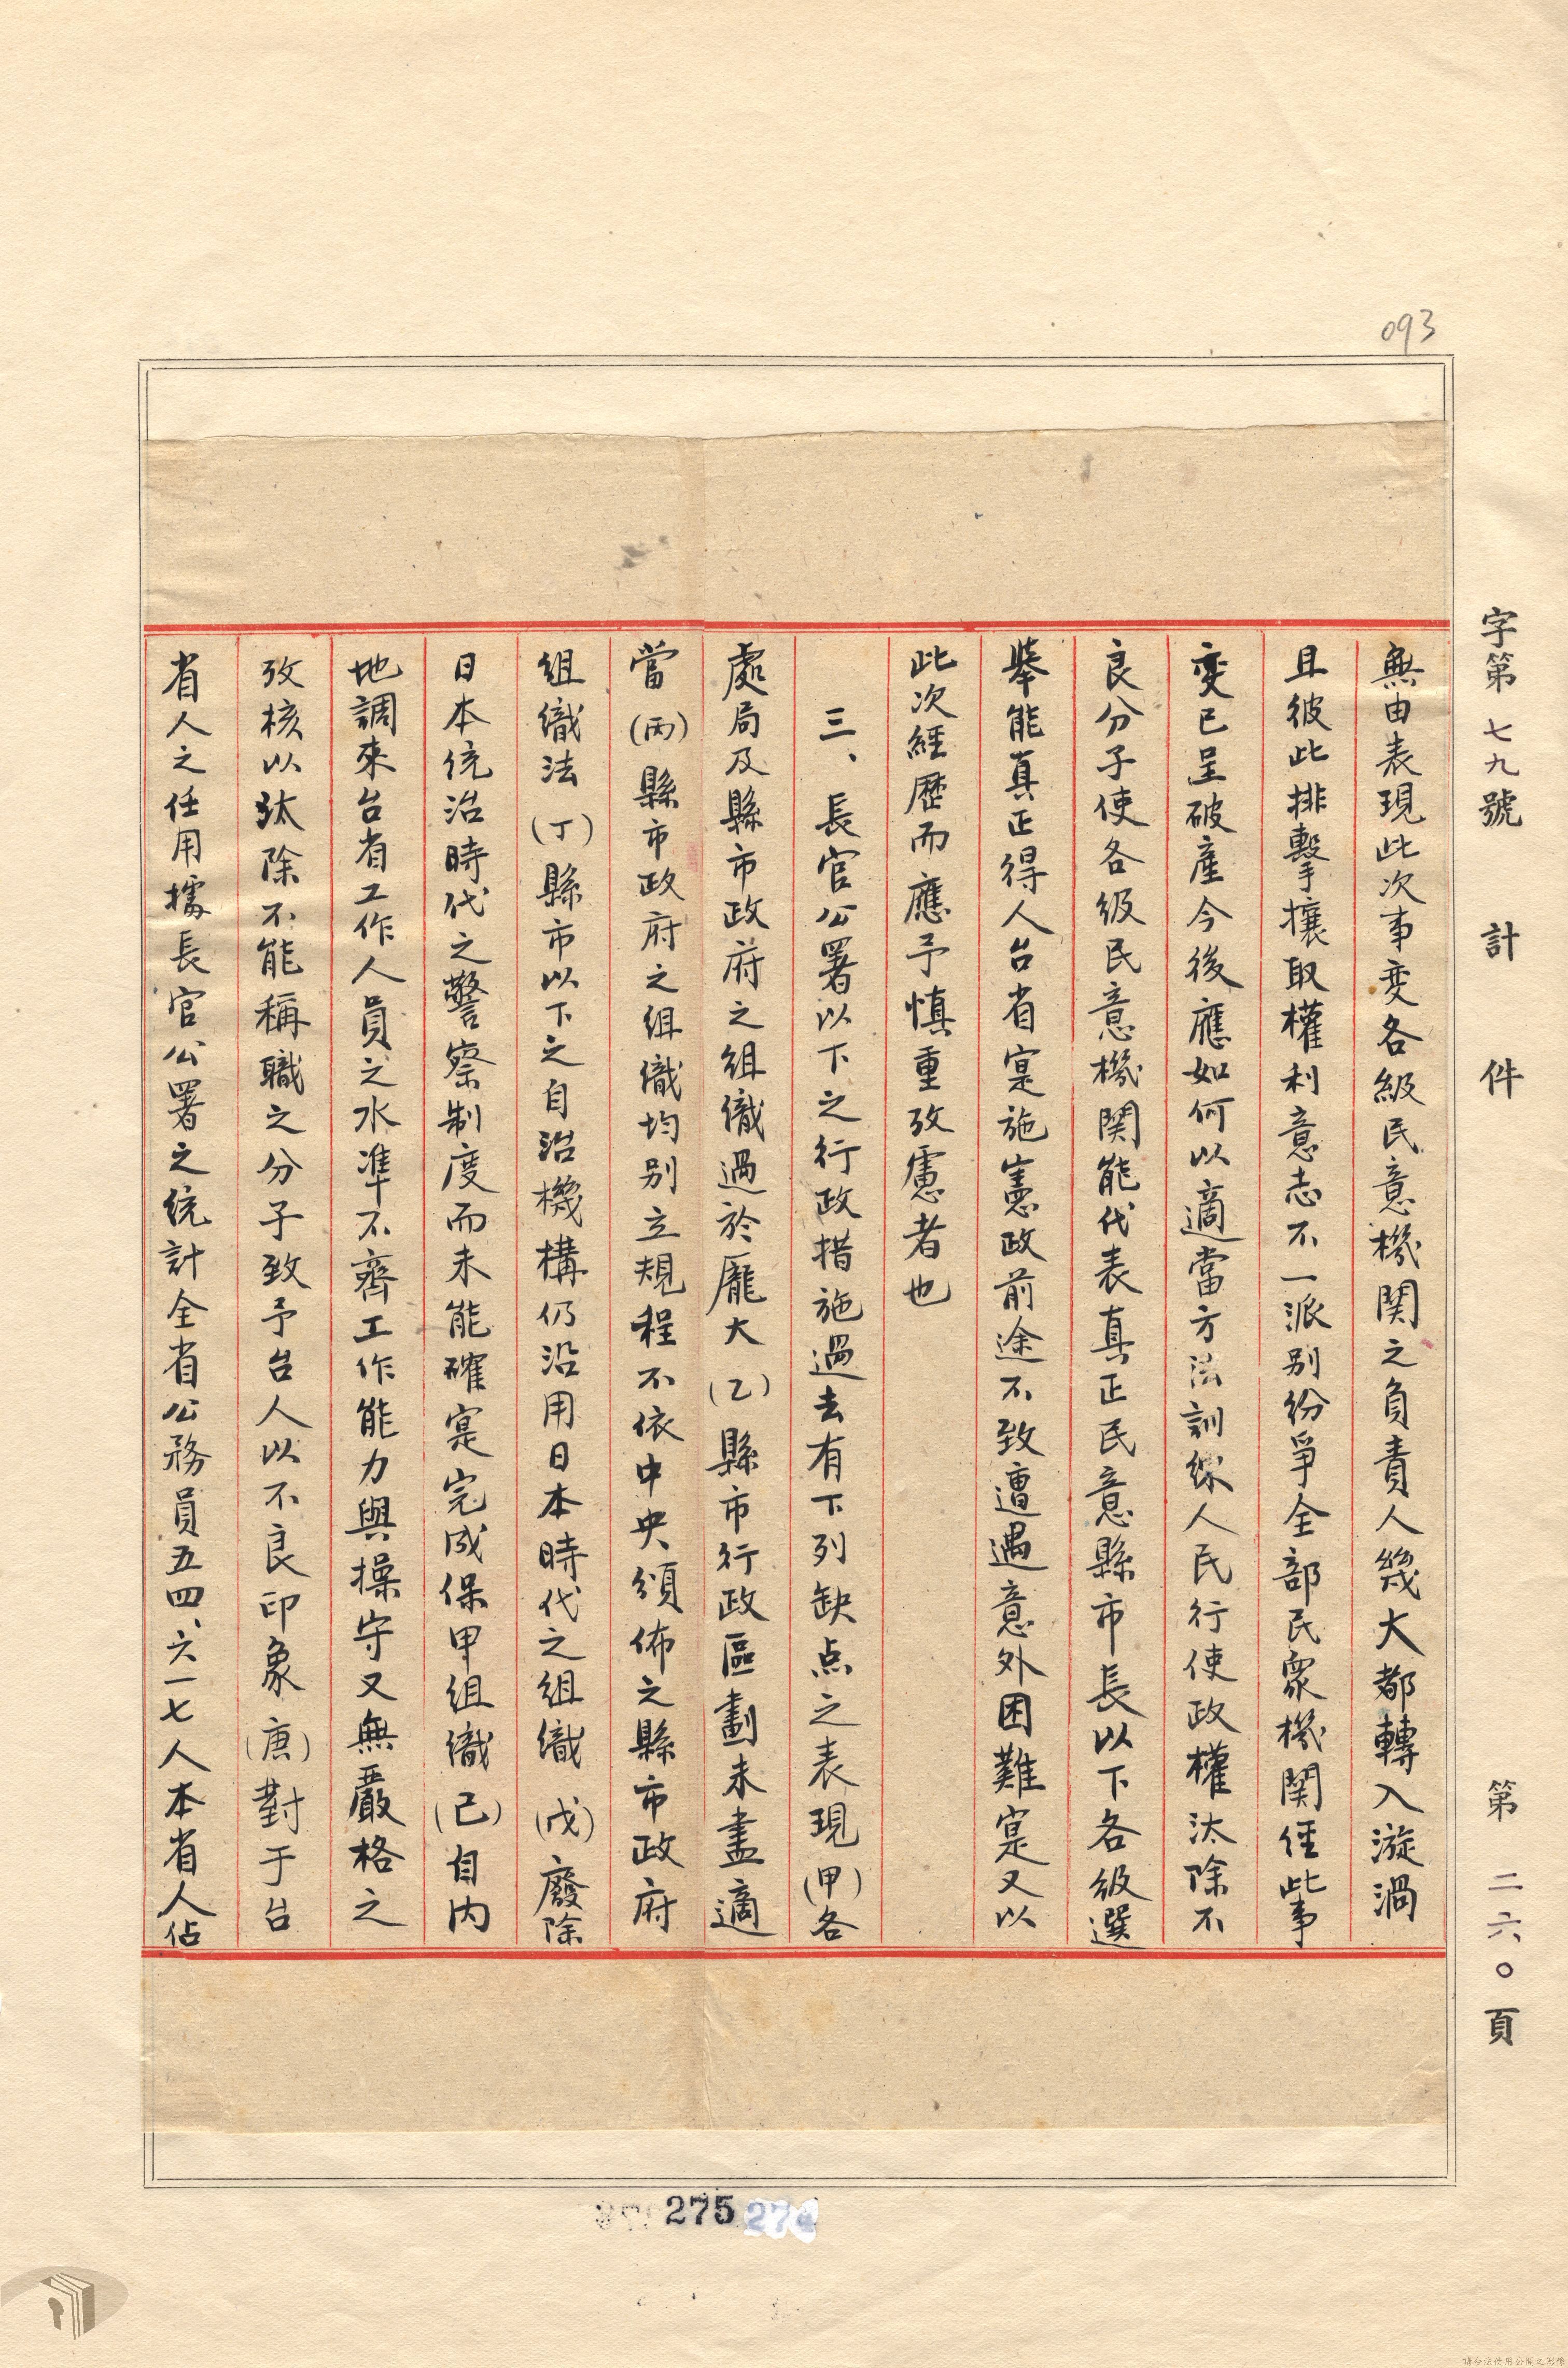 093
字第七九號 計 件 第二六〇頁
無由表現此次事变各級民意機関之負責人幾大都轉入漩渦
且彼此排擊攘取權利意志不一派别纷爭全部民眾機関經此事
变已呈破產今後應如何以適當方法訓練人民行使政權汰除不
良分子使各級民意機関能代表真正民意縣市長以下各級選
舉能真正得人台省寔施憲政前途不致遭遇意外困難寔又以
此次經歷而應予慎重攷慮者也
三、長官公署以下之行政措施過去有下列缺点之表現(甲)各
處局及縣市政府之組織過於龎大(乙)縣市行政區劃未盡適
當(丙)縣市政府之组織均别立規程不依中央頒佈之縣市政府
组織法(丁)縣市以下之自治機構仍沿用日本時代之组織(戊)廢除
日本统治時代之警察制度而未能確寔完成保甲组織(己)自内
地調來台省工作人員之水準不齊工作能力與操守又無嚴格之
攷核以致汰除不能稱職之分子致予台人以不良印象(庚)對于台
省人之任用據長官公署之統計全省公務員五四、六一七人本省人佔
275
274
請合法使用公開之影像